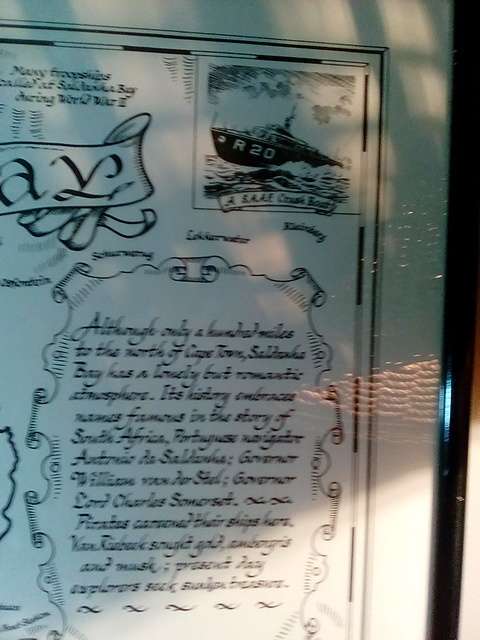 Many troopships
called at Saldanha Bay
during World War II
ay
R 20
A S.A.A.F. Crash Boat
Kleinberg
Lekkerwater
Skuurwerng
Although only a hundred miles
to the north of Cape Town, Saldanha
Bay has a lonely but romantic
atmosphere. Its history embraces
names famous in the story of
South Africa, Portuguese navigator
Antonio da Saldanha; Governor
William van der Stel; Governor
Lord Charles Somerset.
Pirates careened their ships here.
Van Riebeek sought gold, ambergris
and musk; present day
explorers seek sunken treasure.